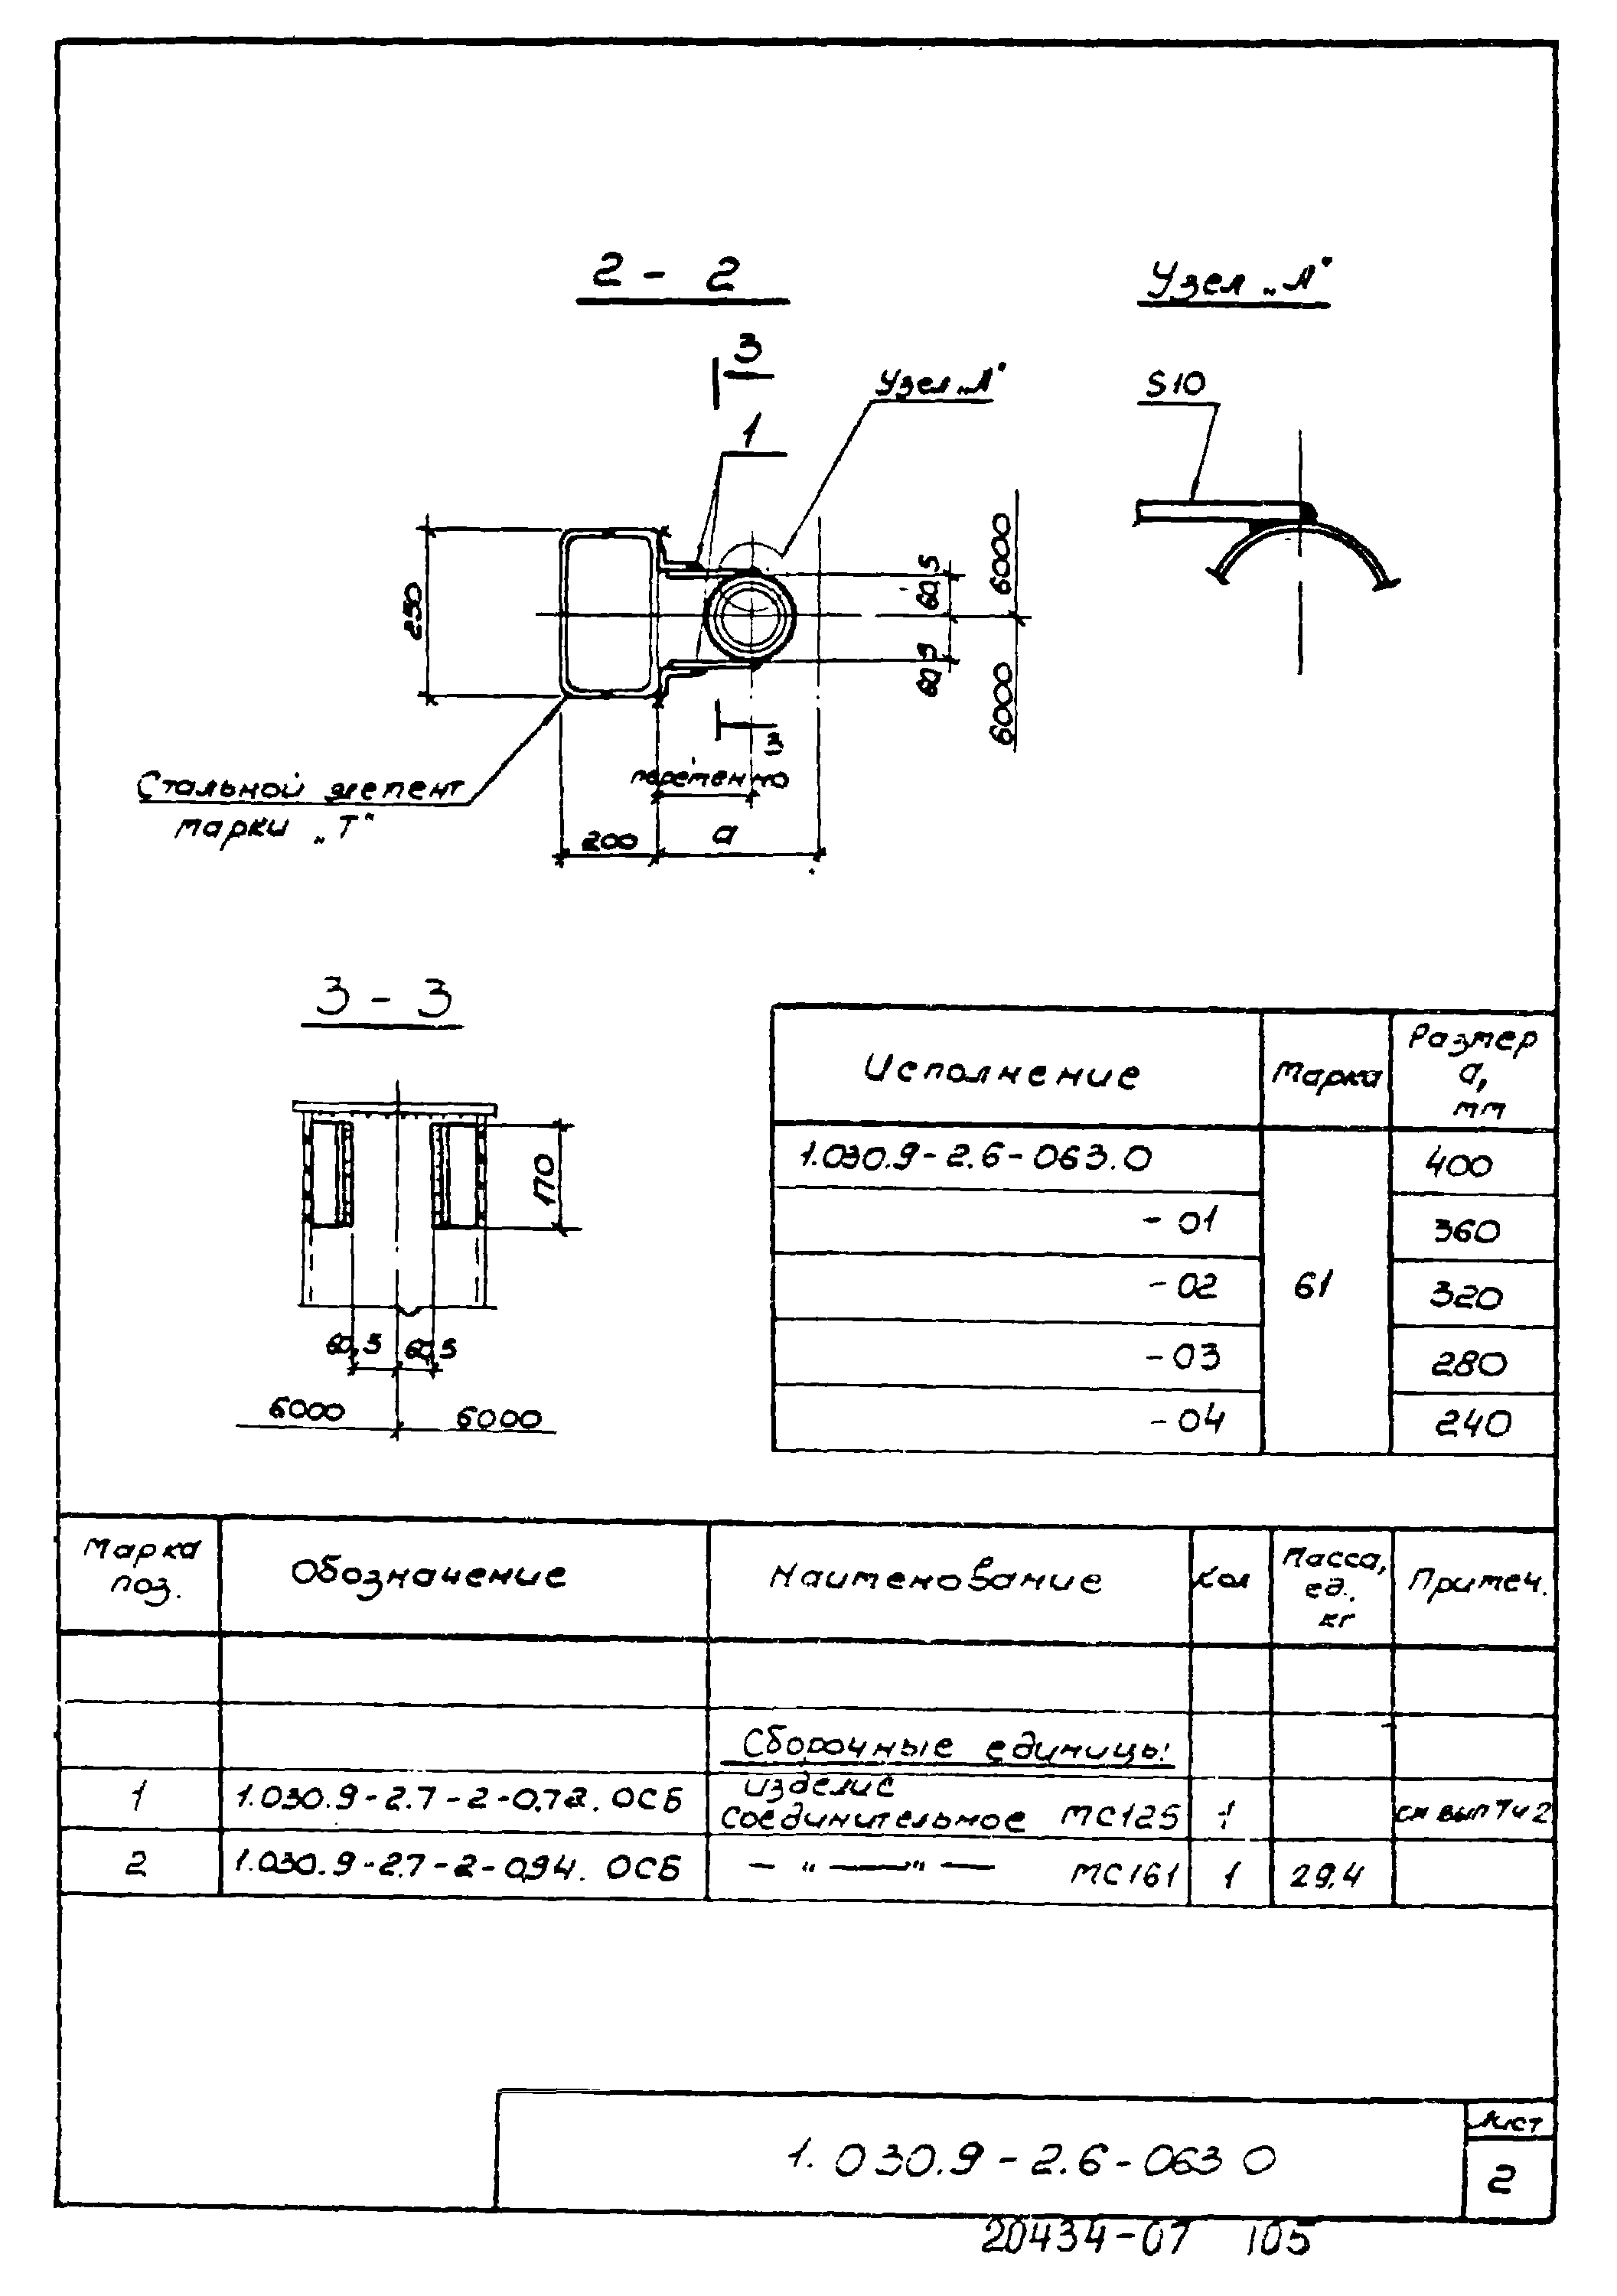 2 - 2
Узел „Л"
3
Узел „Л"
1
S10
250
60,5
6000
60,5
6000
3
Стальной элемент
марки „Т"
переменно
200
а
3 - 3
170
60,5 60,5
6000 6000
Исполнение Марка Размер а, мм
1.030.9-2.6-063.0 61 400
-01 360
-02 320
-03 280
-04 240
Марка поз. Обозначение Наименование Кол Масса, ед., кг Примеч.
Сборочные единицы:
1 1.030.9-2.7-2-0.72.0СБ изделие соединительное МС125 1 см вып 7ч2
2 1.030.9-2.7-2-094.0СБ — " —— " — МС161 1 29,4
1.030.9-2.6-063 0
Лист
2
20434-07 105